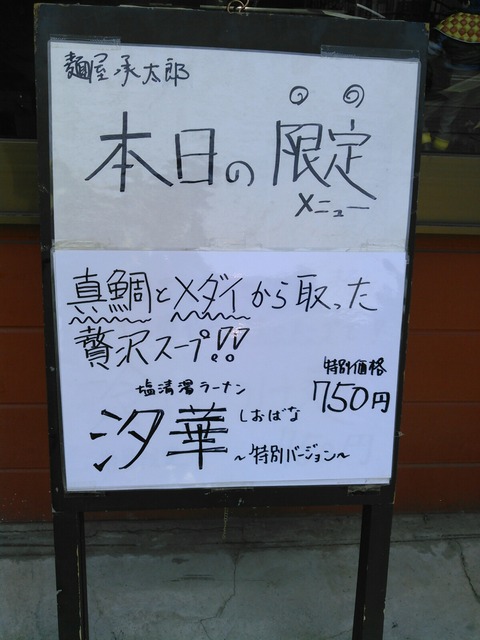 麺屋承太郎
本日の限定
メニュー
真鯛とメダイから取った
贅沢スープ!!
特別価格
750円
塩清湯ラーメン
汐華 しおばな
~特別バージョン~